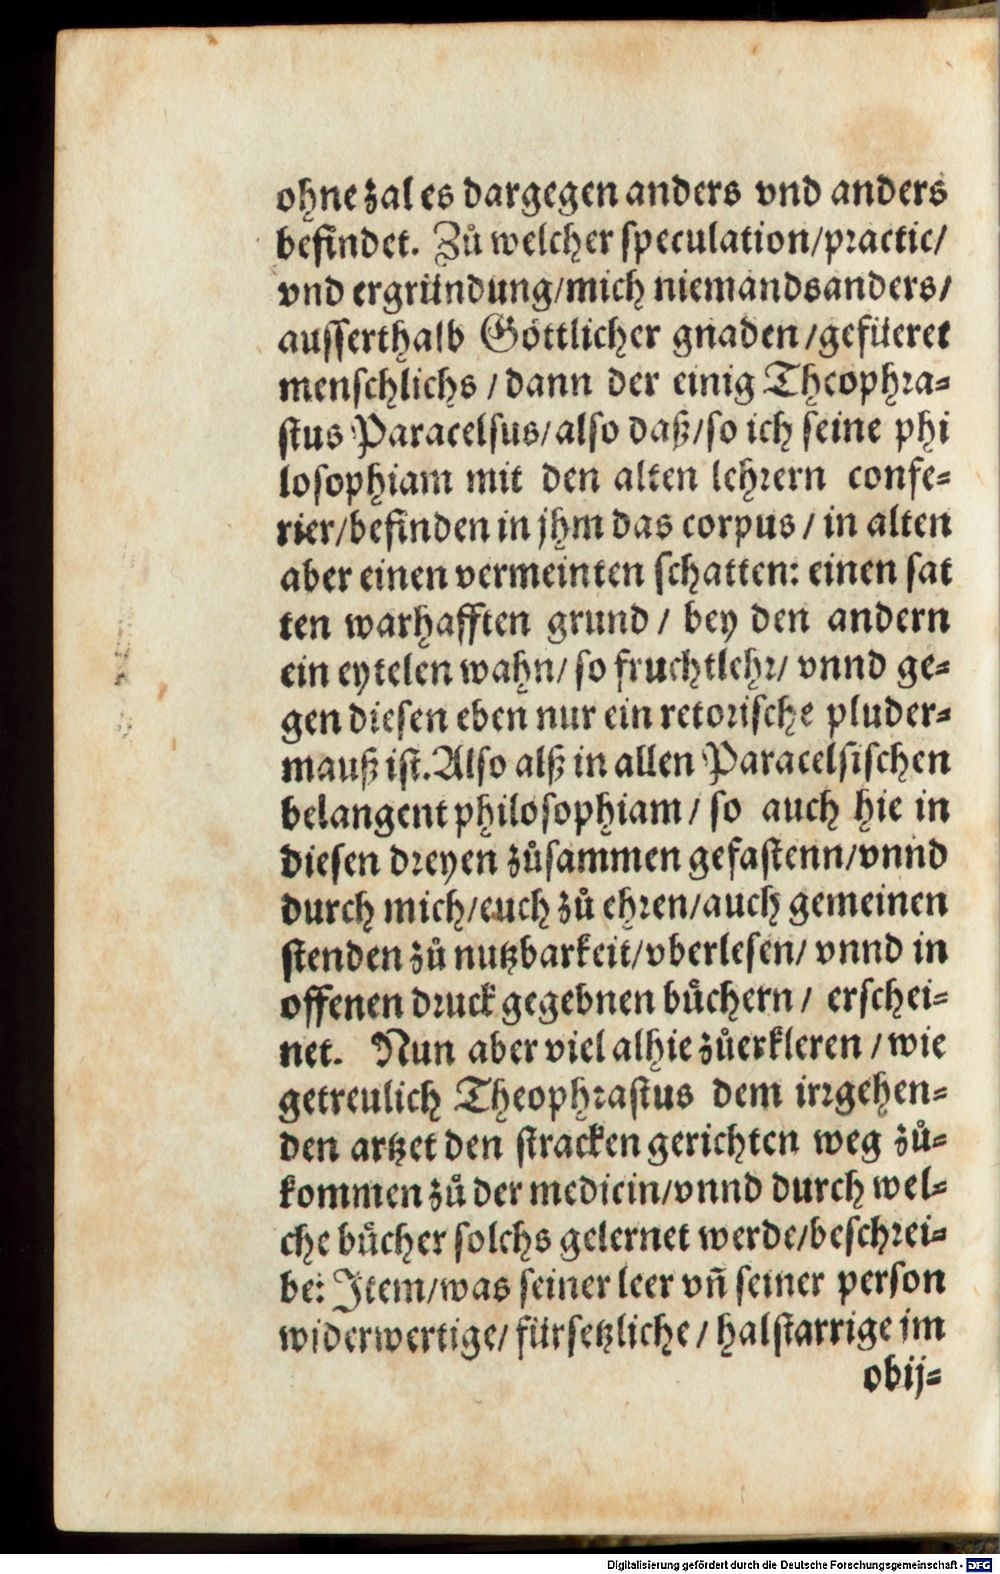 ohne zal es dargegen anders vnd anders
befindet. Zů welcher speculation/practic/
vnd ergründung/mich niemandsanders/
ausserthalb Göttlicher gnaden/gefüeret
menschlichs/dann der einig Theophra-
stus Paracelsus/also daß/so ich seine phi
losophiam mit den alten lehrern confe-
rier/befinden in jhm das corpus/in alten
aber einen vermeinten schatten: einen sat
ten warhafften grund/bey den andern
ein eytelen wahn/so fruchtlehr/vnnd ge-
gen diesen eben nur ein retorische pluder-
mauß ist. Also alß in allen Paracelsischen
belangent philosophiam/so auch hie in
diesen dreyen zůsammen gefastenn/vnnd
durch mich/euch zů ehren/auch gemeinen
stenden zů nutzbarkeit/vberlesen/vnnd in
offenen druck gegebnen bůchern/erschei-
net. Nun aber viel alhie zůerkleren/wie
getreulich Theophrastus dem irrgehen-
den artzet den stracken gerichten weg zů-
kommen zů der medicin/vnnd durch wel-
che bůcher solchs gelernet werde/beschrei-
be: Item/was seiner leer vñ seiner person
widerwertige/fürsetzliche/halstarrige jm
obij-
Digitalisierung gefördert durch die Deutsche Forschungsgemeinschaft - DFG